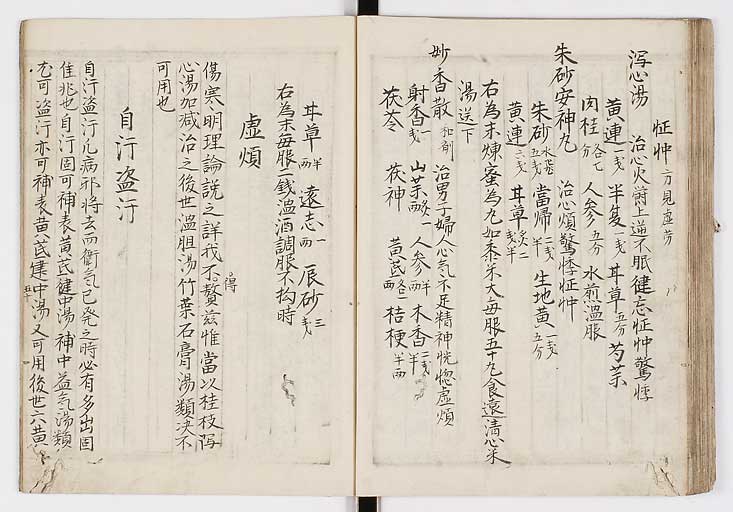 怔忡 方見虛労
瀉心湯 治心火欝上逆不眠健忘怔忡驚悸
黄連一戔 半夏一戔 甘草五分 芍薬
肉桂各七分 人参五分 水煎温服
朱砂安神丸 治心煩驚悸怔忡
朱砂五戔水飛 當帰二戔半 生地黄一戔五分
黄連六戔 甘草炙二戔半
右為末煉蜜為丸如黍米大每服五十丸食遠清心米
湯送下
妙香散和剤 治男子婦人心氣不足精神恍惚虛煩
射香一戔 山薬炙一両 人参半両 木香二戔半
茯苓 茯神 黄芪各一両 桔梗半両
甘草半両 遠志一両 辰砂三戔
右為末每服二錢温酒調服不拘時
虛煩
傷寒明理論説之詳我不得贅茲惟當以桂枝瀉
心湯加減治之後世温胆湯竹葉石膏湯類決不
可用也
自汗盗汗
自汗盗汗凡病邪將去而衛氣已発之時必有多出固
佳兆也自汗固可補表黄芪健中湯補中益气湯類
尤可盗汗亦可補表黄芪建中湯又可用後世六黄